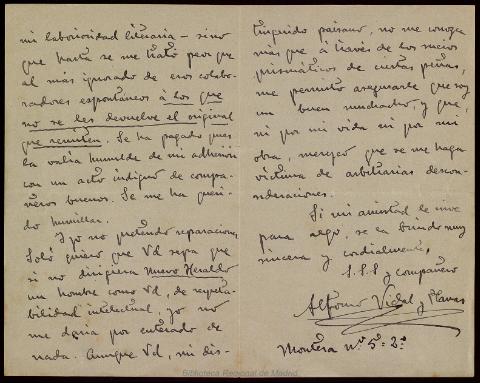 mi laboriosidad literaria – sino
que hasta se me trató peor que
al más ignorado de esos colabo-
radores espontáneos á los que
no se les devuelve el original
que remiten. Se ha pagado pues
la valía humilde de mi adhesión
con un acto indigno de compa-
ñeros buenos. Se me ha queri-
do humillar.
Y yo no pretendo reparaciones
Solo quiero que Vd sepa que
si no dirigiera Nuevo Heraldo
un hombre como Vd, de respeta-
bilidad intelectual, yo no
me daria por enterado de
nada. Aunque Vd, mi dis-
tinguido paisano, no me conozca
más que á través de los sucios
prismáticos de ciertas peñas,
me permito asegurarle que soy
un buen muchacho, y que,
ni por mi vida ni por mi
obra, merezco que se me haga
víctima de arbitrarias descon-
sideraciones.
Si mi amistad le sirve
para algo, se la brindo muy
sincera y cordialmente,
S.S.S y compañero
Alfonso Vidal y Planas
Montera nº 5 - 2º
Biblioteca Regional de Madrid